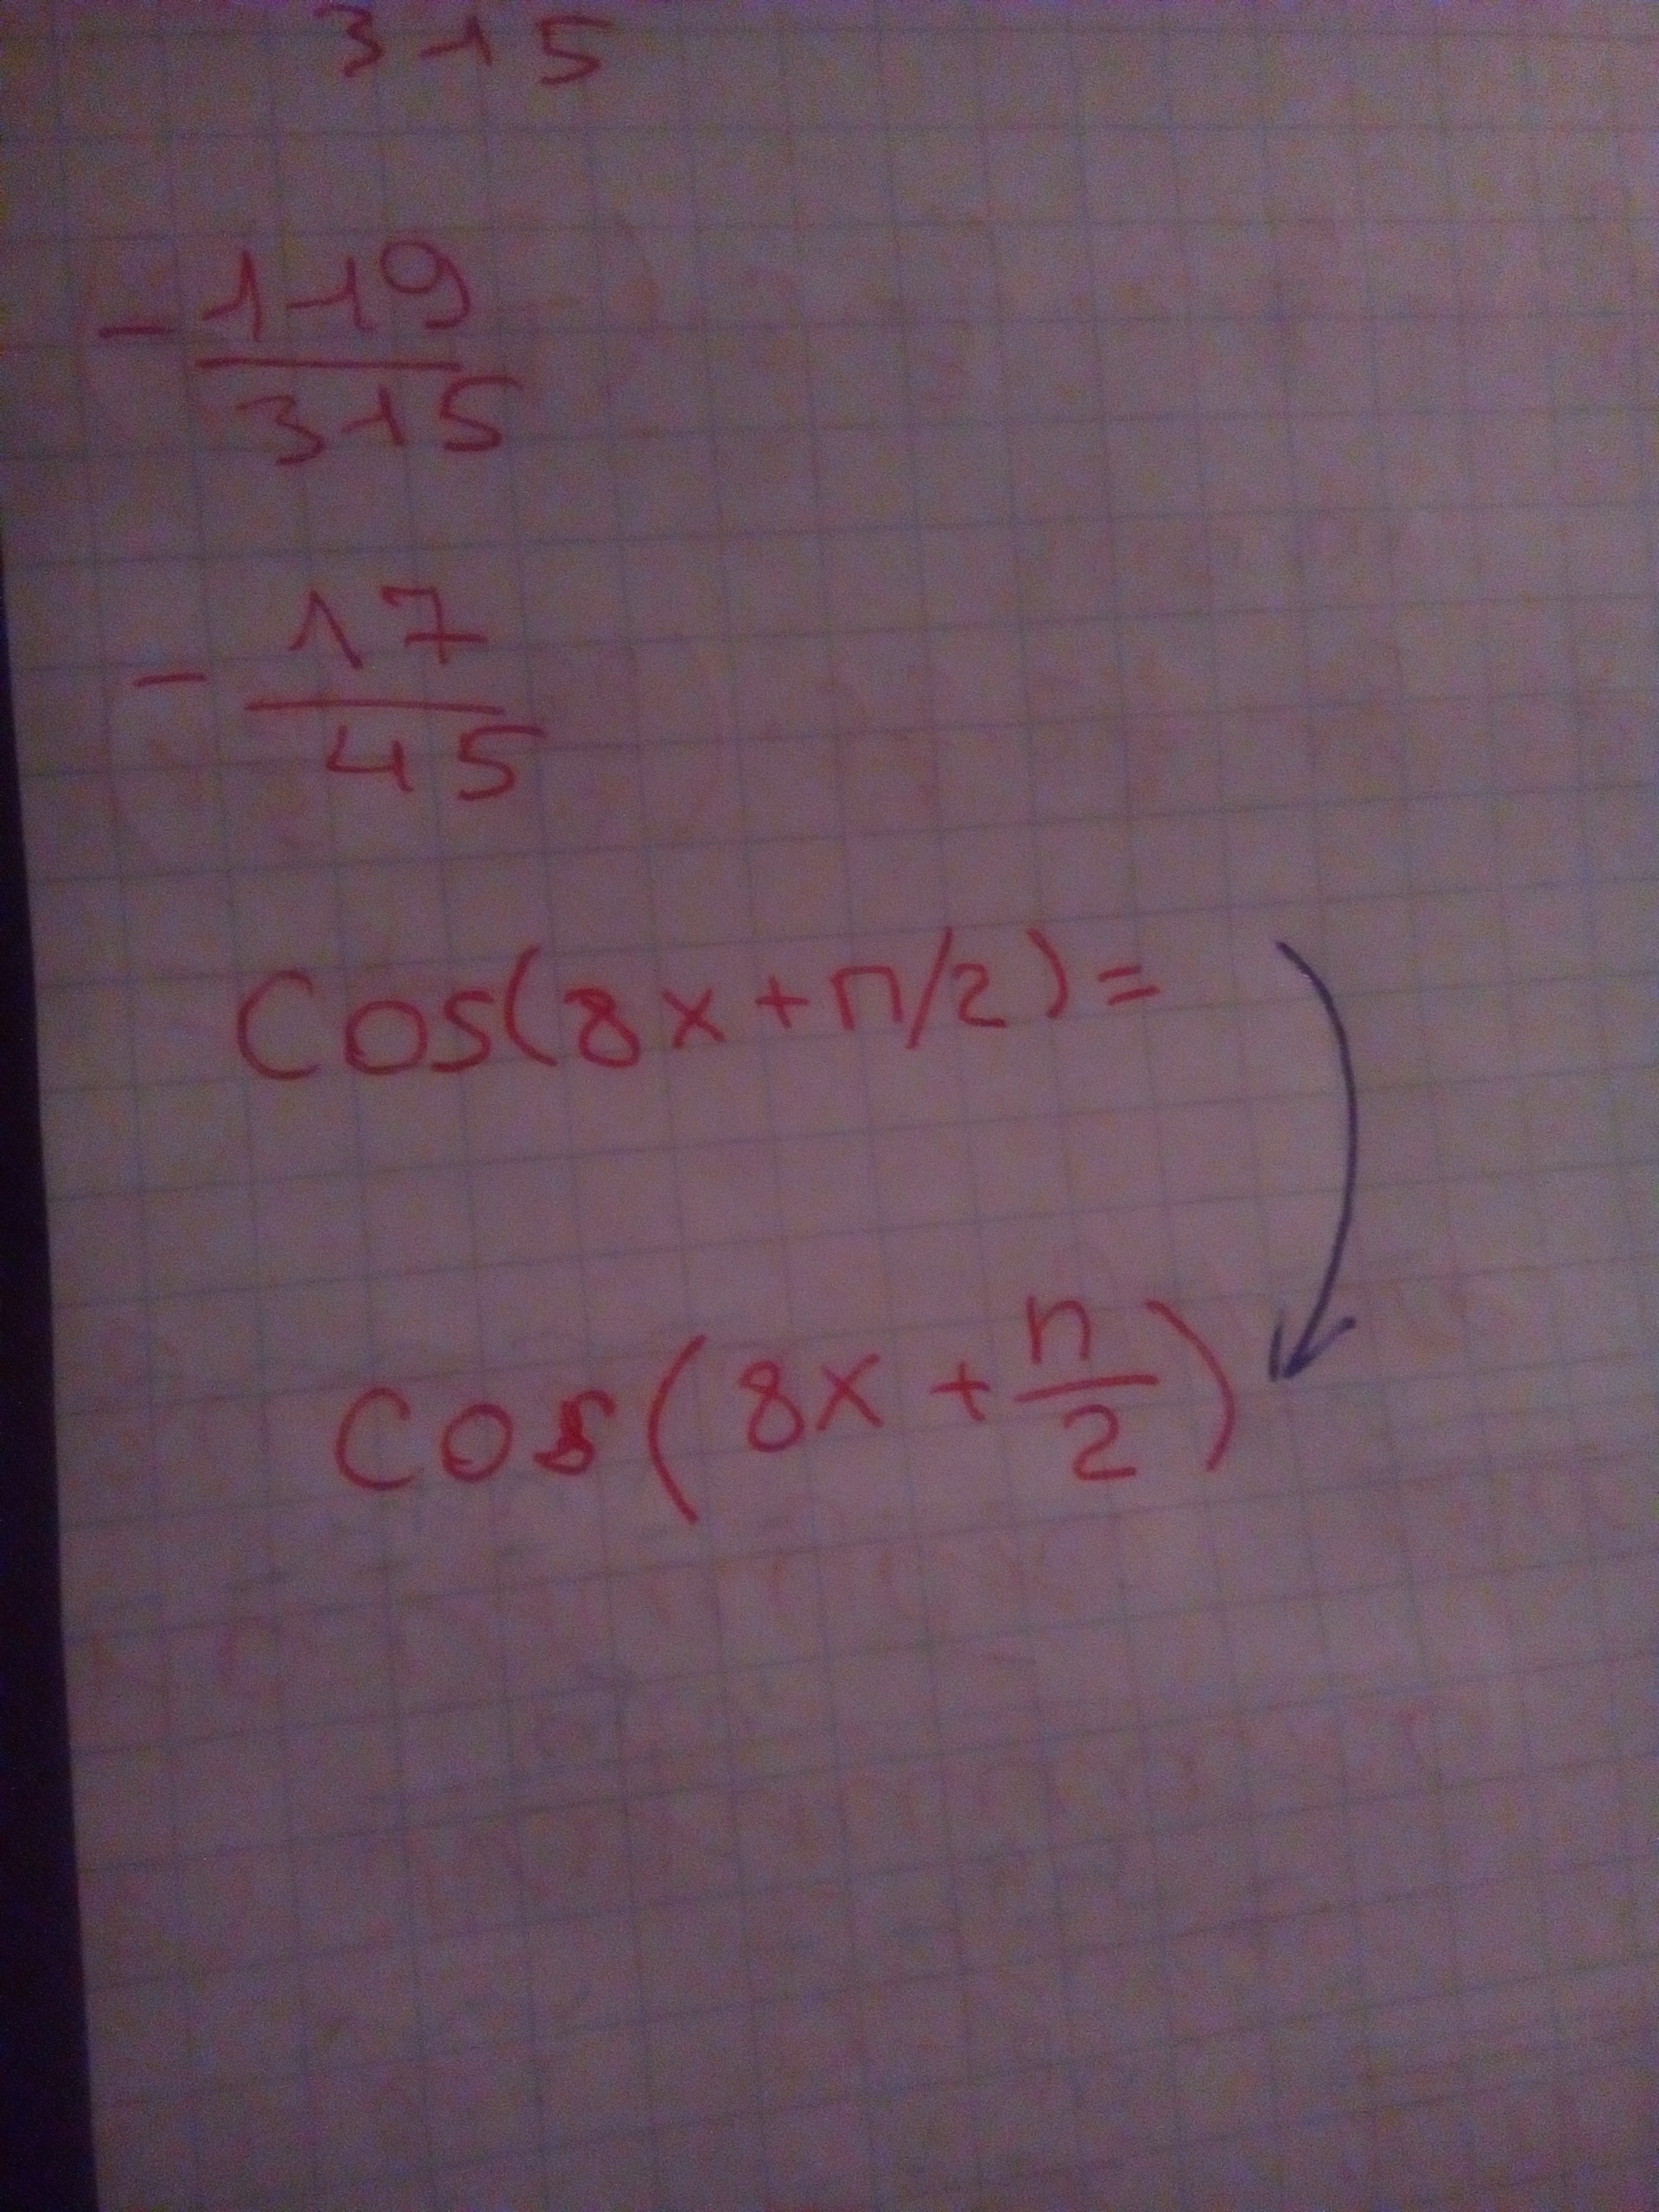 315
- 119/315
- 17/45
Cos(8x+п/2)=
Cos(8x+п/2)